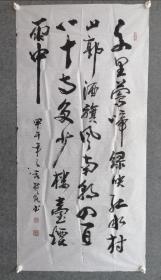 千里莺啼绿映红水村
山郭酒旗风南朝四百
八十寺多少楼台烟
雨中
甲午年
书